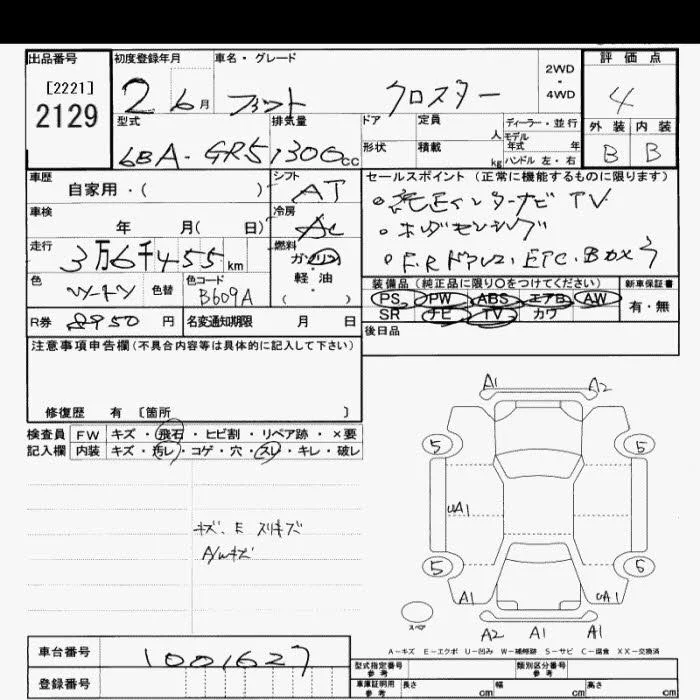 出品番号 初度登録年月 車名・グレード 2WD・4WD 評価点
[2221]
2129 2 6月 フィット クロスター 4
型式 排気量 ドア 定員 人 ディーラー・並行 外装 内装
モデル年式 年
6BA-GR5 1300cc 形状 積載 kg ハンドル 左・右 B B
車歴 自家用・( ) シフト AT セールスポイント (正常に機能するものに限ります)
車検 年 月( 日) 冷房 AC ・純正インターナビ TV
・ホンダセンシング
走行 3万6千455km 燃料 ガソリン 軽油 ( ) ・F.Rドラレコ.ETC.
色 ツートン 色替 色コード B609A
装備品 (純正品に限り○をつけてください) 新車保証書
PS PW ABS エアB AW 有・無
SR ナビ TV カワ
R券 8950円 名変通知期限 月 日 後日品
注意事項申告欄(不具合内容等は具体的に記入して下さい)
修復歴 有 〔箇所 〕
検査員 FW キズ・飛石・ヒビ割・リペア跡・×要
記入欄 内装 キズ・汚レ・コゲ・穴・スレ・キレ・破レ
キズ、E スリキズ
A/Wキズ
A1 A2
5 5
UA1
5 5
A1 UA1
スペア A2 A1 A1
A-キズ E-エクボ U-凹み W-補修跡 S-サビ C-腐食 XX-交換済
車台番号 1001627
型式指定番号 参考 類別区分番号 参考
登録番号 車庫証明用 参考 長さ cm 幅 cm 高さ cm